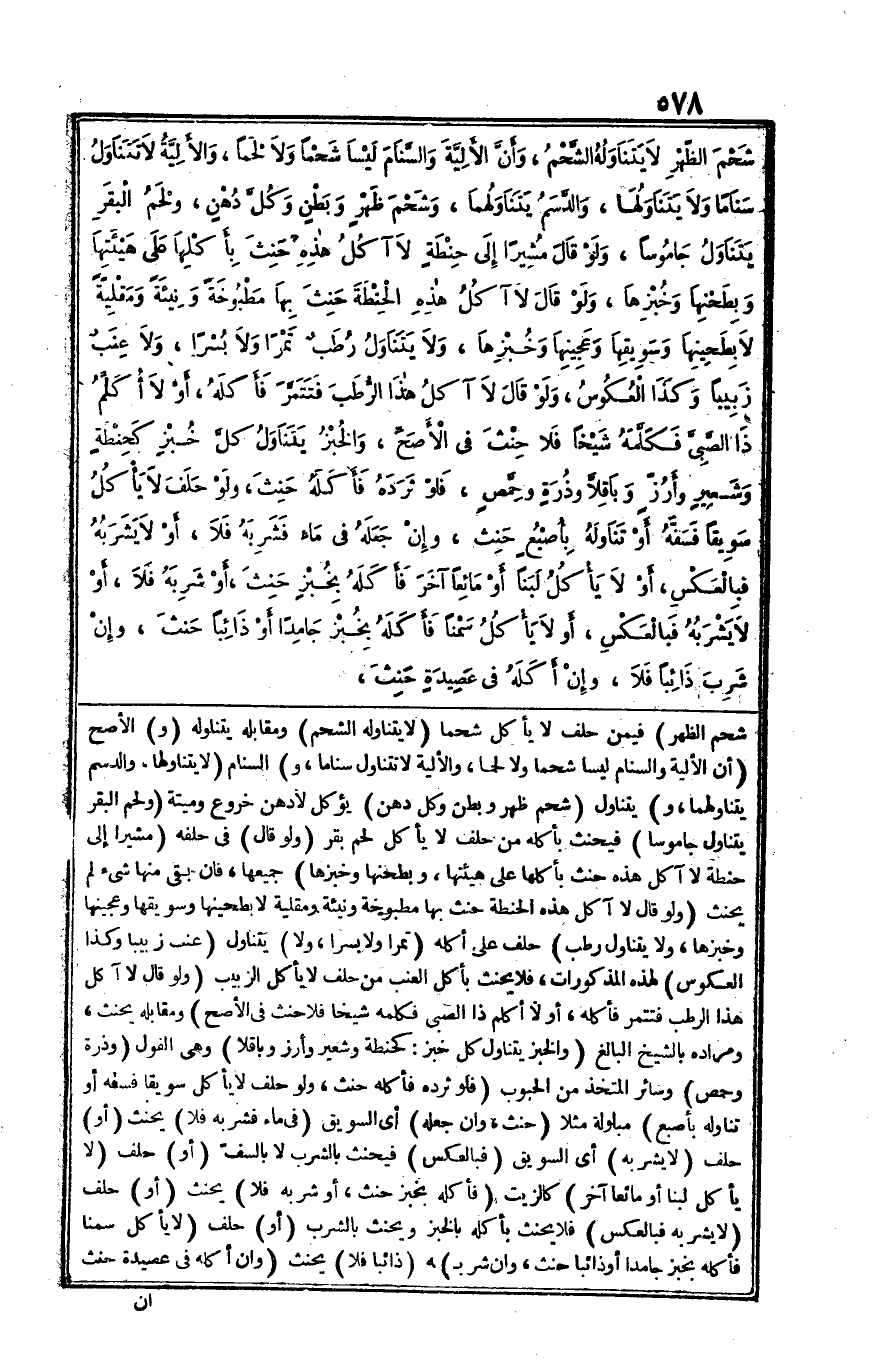 ٥٧٨
شَحْمَ الظَّهْرِ لاَ يَتَنَاوَلُهُ الشَّحْمُ ، وَأَنَّ الأَلِيَّةَ وَالسَّنَامَ لَيْسَا شَحْماً وَلاَ لَحْماً ، وَالأَلِيَّةُ لاَ تَتَنَاوَلُ
سَنَامًا وَلاَ يَتَنَاوَلُهَا ، وَالدَّسَمُ يَتَنَاوَلُهُما ، وَشَحْمَ ظَهْرٍ وَبَطْنٍ وَكُلَّ دُهْنٍ ، ولَحْمُ الْبَقَرِ
يَتَنَاوَلُ جَامُوساً ، وَلَوْ قَالَ مُشِيرًا إِلَى حِنْطَةٍ لاَ آكُلُ هٰذِهِ حَنِثَ بِأَكْلِهَا عَلَى هَيْئَتِهَا
وَبِطَحْنِهَا وَخُبْزِهَا ، وَلَوْ قَالَ لاَ آكُلُ هٰذِهِ الْحِنْطَةَ حَنِثَ بِهَا مَطْبُوخَةً وَنِيئَةً وَمَقْلِيَّةً
لاَ بِطَحِينِهَا وَسَوِيقِهَا وَعَجِينِهَا وَخُبْزِهَا ، وَلاَ يَتَنَاوَلُ رُطَبٌ تَمْرًا وَلاَ بُسْرًا ، وَلاَ عِنَبٌ
زَبِيباً وَكَذَا الْعُكُوسُ ، وَلَوْ قَالَ لاَ آكُلُ هٰذَا الرُّطَبَ فَتَتَمَّرَ فَأَكَلَهُ ، أَوْ لاَ أُكَلِّمُ
ذَا الصَّبِيَّ فَكَلَّمَهُ شَيْخاً فَلاَ حِنْثَ فِى الْأَصَحِّ ، وَالْخُبْزُ يَتَنَاوَلُ كلَّ خُبْزٍ كَحِنْطَةٍ
وَشَعِيرٍ وأَرُزٍّ وَبَاقِلاَّ وذُرَةٍ وحِمَّصٍ ، فَلَوْ ثَرَدَهُ فَأَكَلَهُ حَنِثَ ، ولَوْ حَلَفَ لاَ يَأْكُلُ
سَوِيقاً فَسَفَّهُ أَوْ تَنَاوَلَهُ بِأُصْبُعٍ حَنِثَ ، وإِنْ جَعَلَهُ فِى مَاءٍ فَشَرِبَهُ فَلاَ ، أَوْ لاَ يَشْرَبُهُ
فَبِالْعَكْسِ ، أَوْ لاَ يَأْكُلُ لَبَنًا أَوْ مَائِعاً آخَرَ فَأَكَلَهُ بِخُبْزٍ حَنِثَ ، أَوْ شَرِبَهُ فَلاَ ، أَوْ
لاَ يَشْرَبُهُ فَبِالْعَكْسِ ، أَو لاَ يَأْكُلُ سَمْنًا فَأَكَلَهُ بِخُبْزٍ جَامِدًا أَوْ ذَائِباً حَنِثَ ، وإِنْ
شَرِبَ ذَائِباً فَلاَ ، وإِنْ أَكَلَهُ فِى عَصِيدَةٍ حَنِثَ ،
شحم الظهر ) فيمن حلف لا يأكل شحما ( لا يتناوله الشحم ) ومقابله يتناوله ( و ) الأصح
( أن الألية والسنام ليسا شحما ولا لحما ، والألية لا تتناول سناما ، و ) السنام ( لا يتناولها . والدسم
يتناولهما ، و ) يتناول ( شحم ظهر وبطن وكل دهن ) يؤكل لا دهن خروع وميتة ( ولحم البقر
يتناول جاموسا ) فيحنث بأكله من حلف لا يأكل لحم بقر ( ولو قال ) فى حلفه ( مشيرا إلى
حنطة لا آكل هذه حنث بأكلها على هيئتها ، وبطحنها وخبزها ) جميعها ، فان بقى منها شىء لم
يحنث ( ولو قال لا آكل هذه الحنطة حنث بها مطبوخة ونيئة ومقلية لا بطحينها وسويقها وعجينها
وخبزها ، ولا يتناول رطب ) حلف على أكله ( تمرا ولا بسرا ، ولا ) يتناول ( عنب زبيبا وكذا
العكوس ) لهذه المذكورات ، فلا يحنث بأكل العنب من حلف لا يأكل الزبيب ( ولو قال لا آكل
هذا الرطب فتتمر فأكله ، أو لا أكلم ذا الصبى فكلمه شيخا فلا حنث فى الأصح ) ومقابله يحنث ،
ومراده بالشيخ البالغ ( والخبز يتناول كل خبز : كحنطة وشعير وأرز وباقلا ) وهى الفول ( وذرة
وحمص ) وسائر المتخذ من الحبوب ( فلو ثرده فأكله حنث ، ولو حلف لا يأكل سويقا فسفه أو
تناوله بأصبع ) مبلولة مثلا ( حنث ، وان جعله ) أى السويق ( فى ماء فشربه فلا ) يحنث ( أو )
حلف ( لا يشربه ) أى السويق ( فبالعكس ) فيحنث بالشرب لا بالسفّ ( أو ) حلف ( لا
يأكل لبنا أو مائعا آخر ) كالزيت ( فأكله بخبز حنث ، أو شربه فلا ) يحنث ( أو ) حلف
( لا يشربه فبالعكس ) فلا يحنث بأكله بالخبز ويحنث بالشرب ( أو ) حلف ( لا يأكل سمنا
فأكله بخبز جامدا أو ذائبا حنث ، وان شر بـ ) ـه ( ذائبا فلا ) يحنث ( وان أكله فى عصيدة حنث
ان